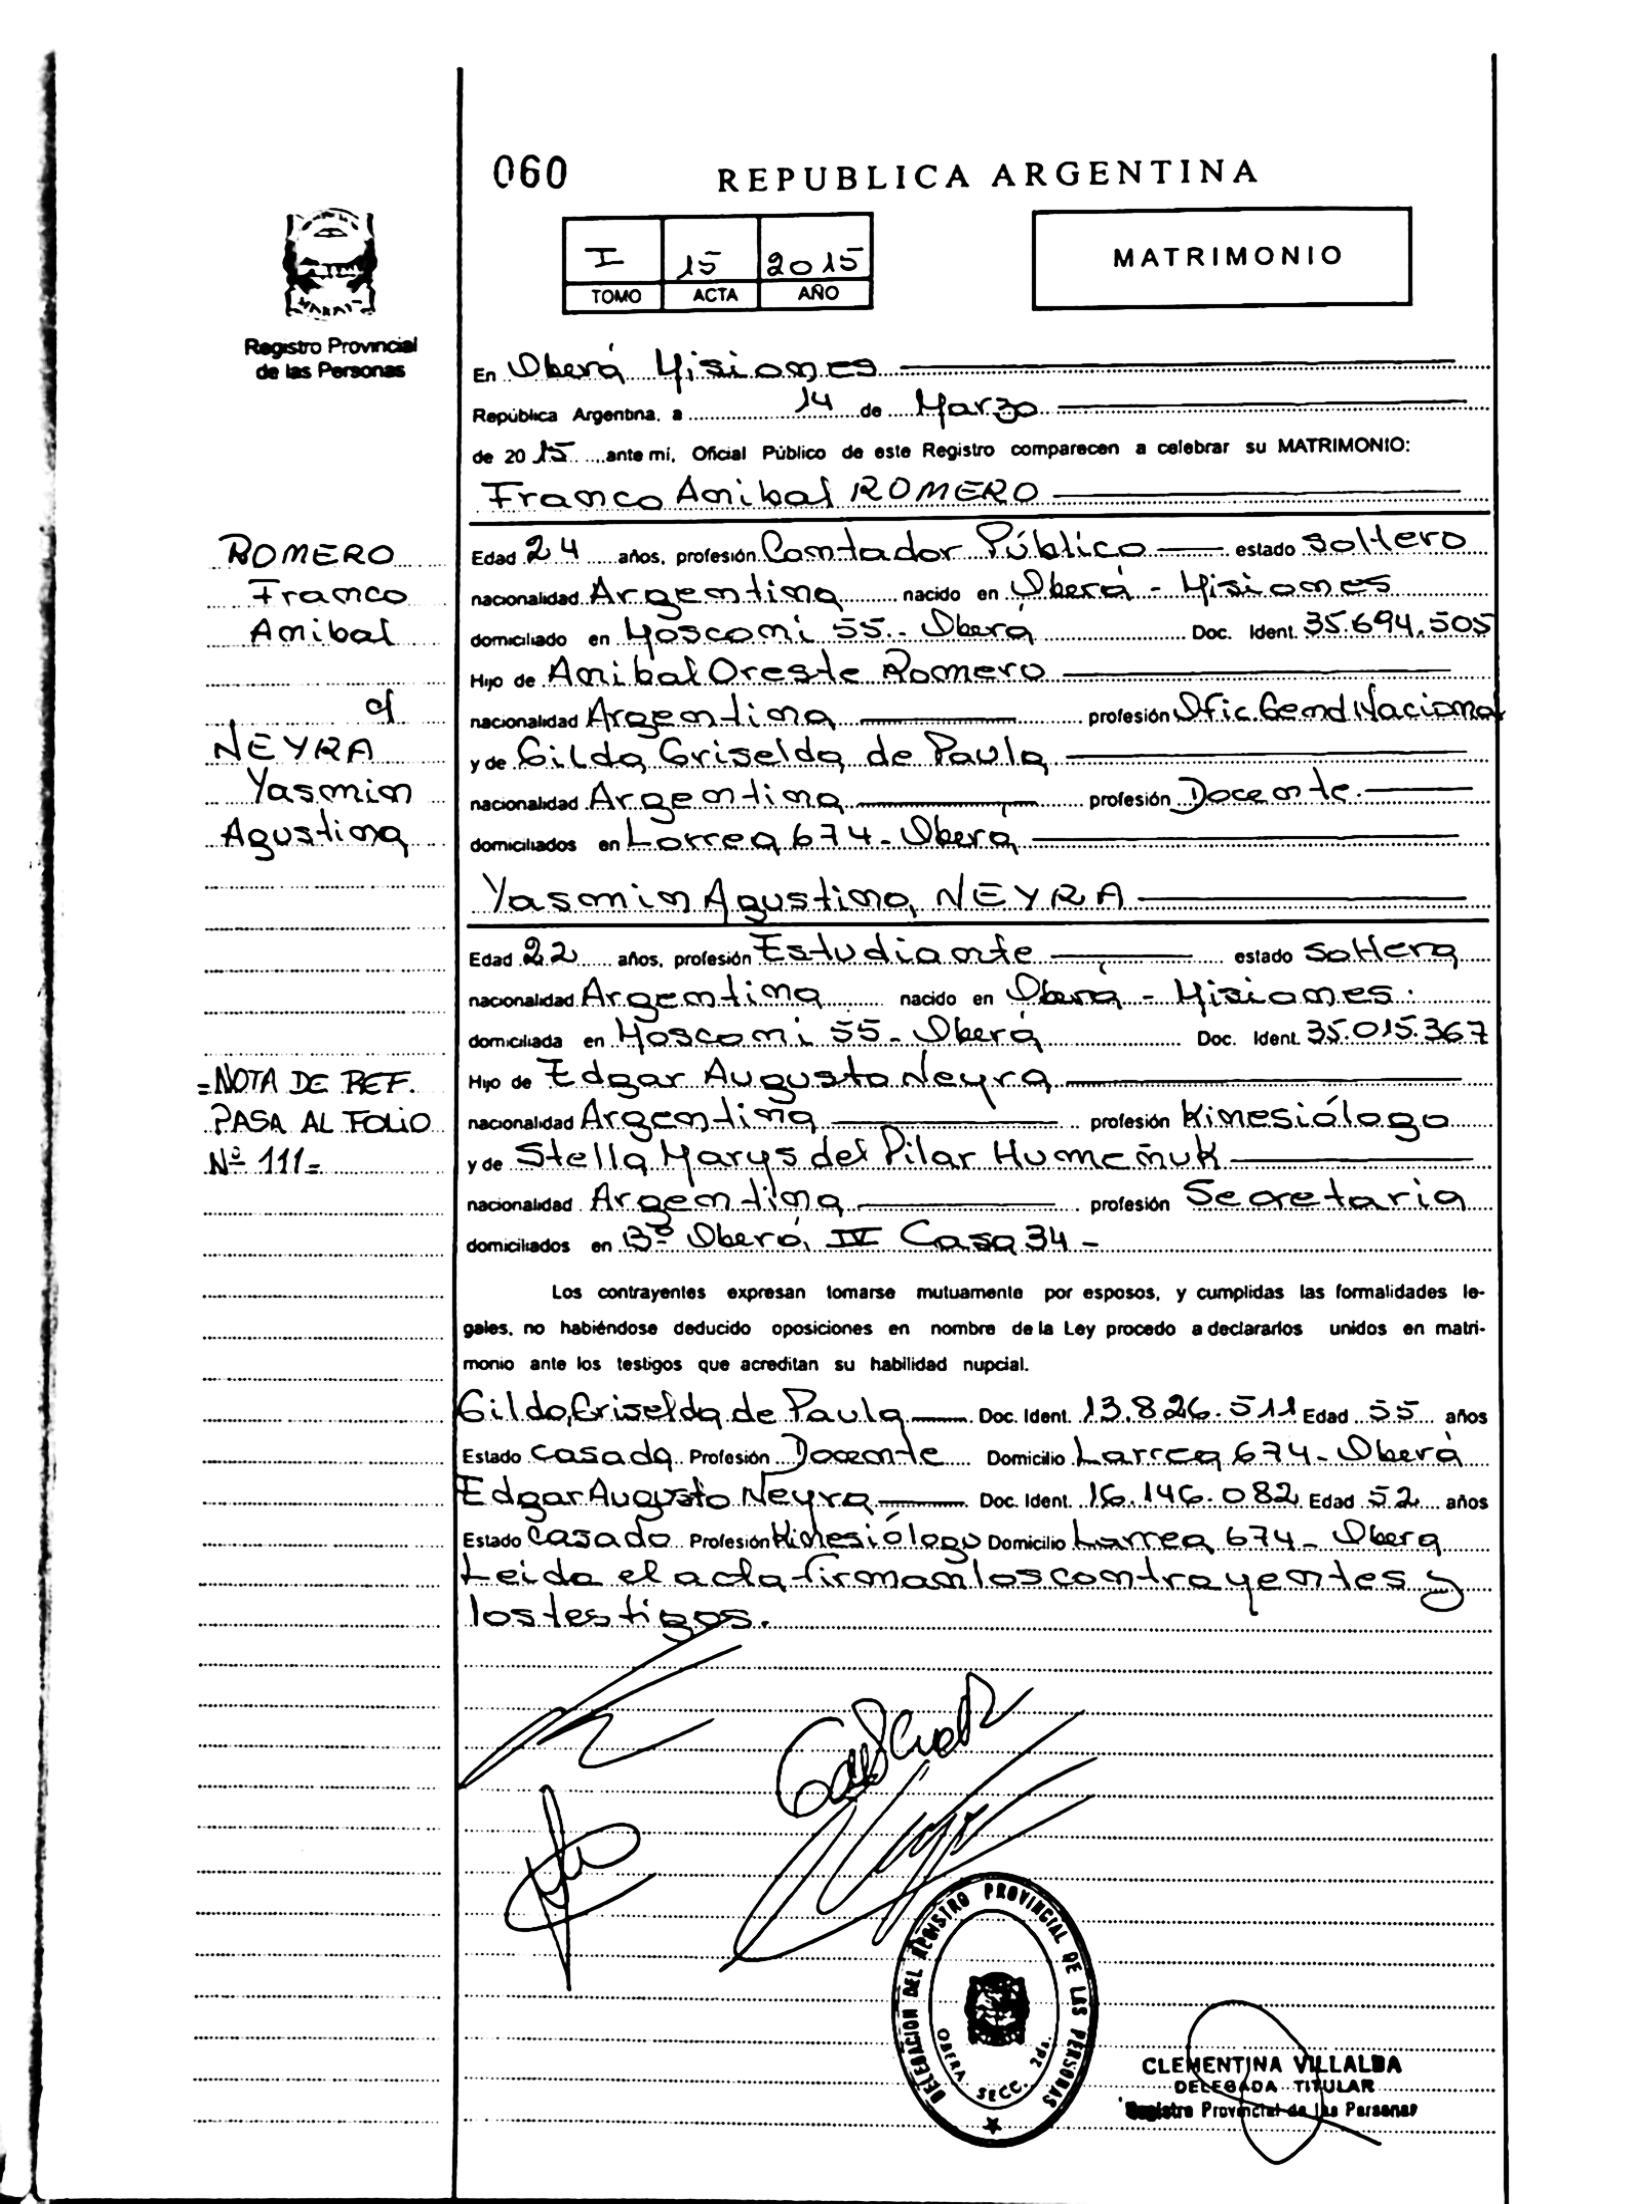 060
REPUBLICA ARGENTINA
I 15 2015
TOMO ACTA AÑO
MATRIMONIO
Registro Provincial
de las Personas
En Oberá Misiones
República Argentina, a 14 de Marzo
de 2015 ante mí, Oficial Público de este Registro comparecen a celebrar su MATRIMONIO:
Franco Anibal ROMERO
ROMERO
Franco
Anibal
c/
NEYRA
Yasmin
Agustina
Edad 24 años, profesión Contador Público estado Soltero
nacionalidad Argentina nacido en Oberá - Misiones
domiciliado en Mosconi 55.. Oberá Doc. Ident. 35.694.505
Hijo de Anibal Oreste Romero
nacionalidad Argentina profesión Ofic. Gend Nacional
y de Gilda Griselda de Paula
nacionalidad Argentina profesión Docente.
domiciliados en Larrea 674 - Oberá
Yasmin Agustina NEYRA
Edad 22 años, profesión Estudiante estado Soltera
nacionalidad Argentina nacido en Oberá - Misiones.
domiciliada en Mosconi 55 - Oberá Doc. Ident. 35.015.367
Hijo de Edgar Augusto Neyra
nacionalidad Argentina profesión Kinesiólogo
y de Stella Marys del Pilar Humeñuk
nacionalidad Argentina profesión Secretaria
domiciliados en Bº Oberá IV Casa 34 -
=NOTA DE REF.
PASA AL FOLIO
Nº 111=
Los contrayentes expresan tomarse mutuamente por esposos, y cumplidas las formalidades le-
gales, no habiéndose deducido oposiciones en nombre de la Ley procedo a declararlos unidos en matri-
monio ante los testigos que acreditan su habilidad nupcial.
Gilda Griselda de Paula Doc. Ident. 13.826.511 Edad 55 años
Estado Casada Profesión Docente Domicilio Larrea 674 - Oberá
Edgar Augusto Neyra Doc. Ident. 16.146.082 Edad 52 años
Estado Casado Profesión Kinesiólogo Domicilio Larrea 674 - Obera
Leida el acta firman los contrayentes y
los testigos.
DELEGACION DEL REGISTRO PROVINCIAL DE LAS PERSONAS
OBERA SECC. 2da.
CLEMENTINA VILLALBA
DELEGADA TITULAR
Registro Provincial de las Personas